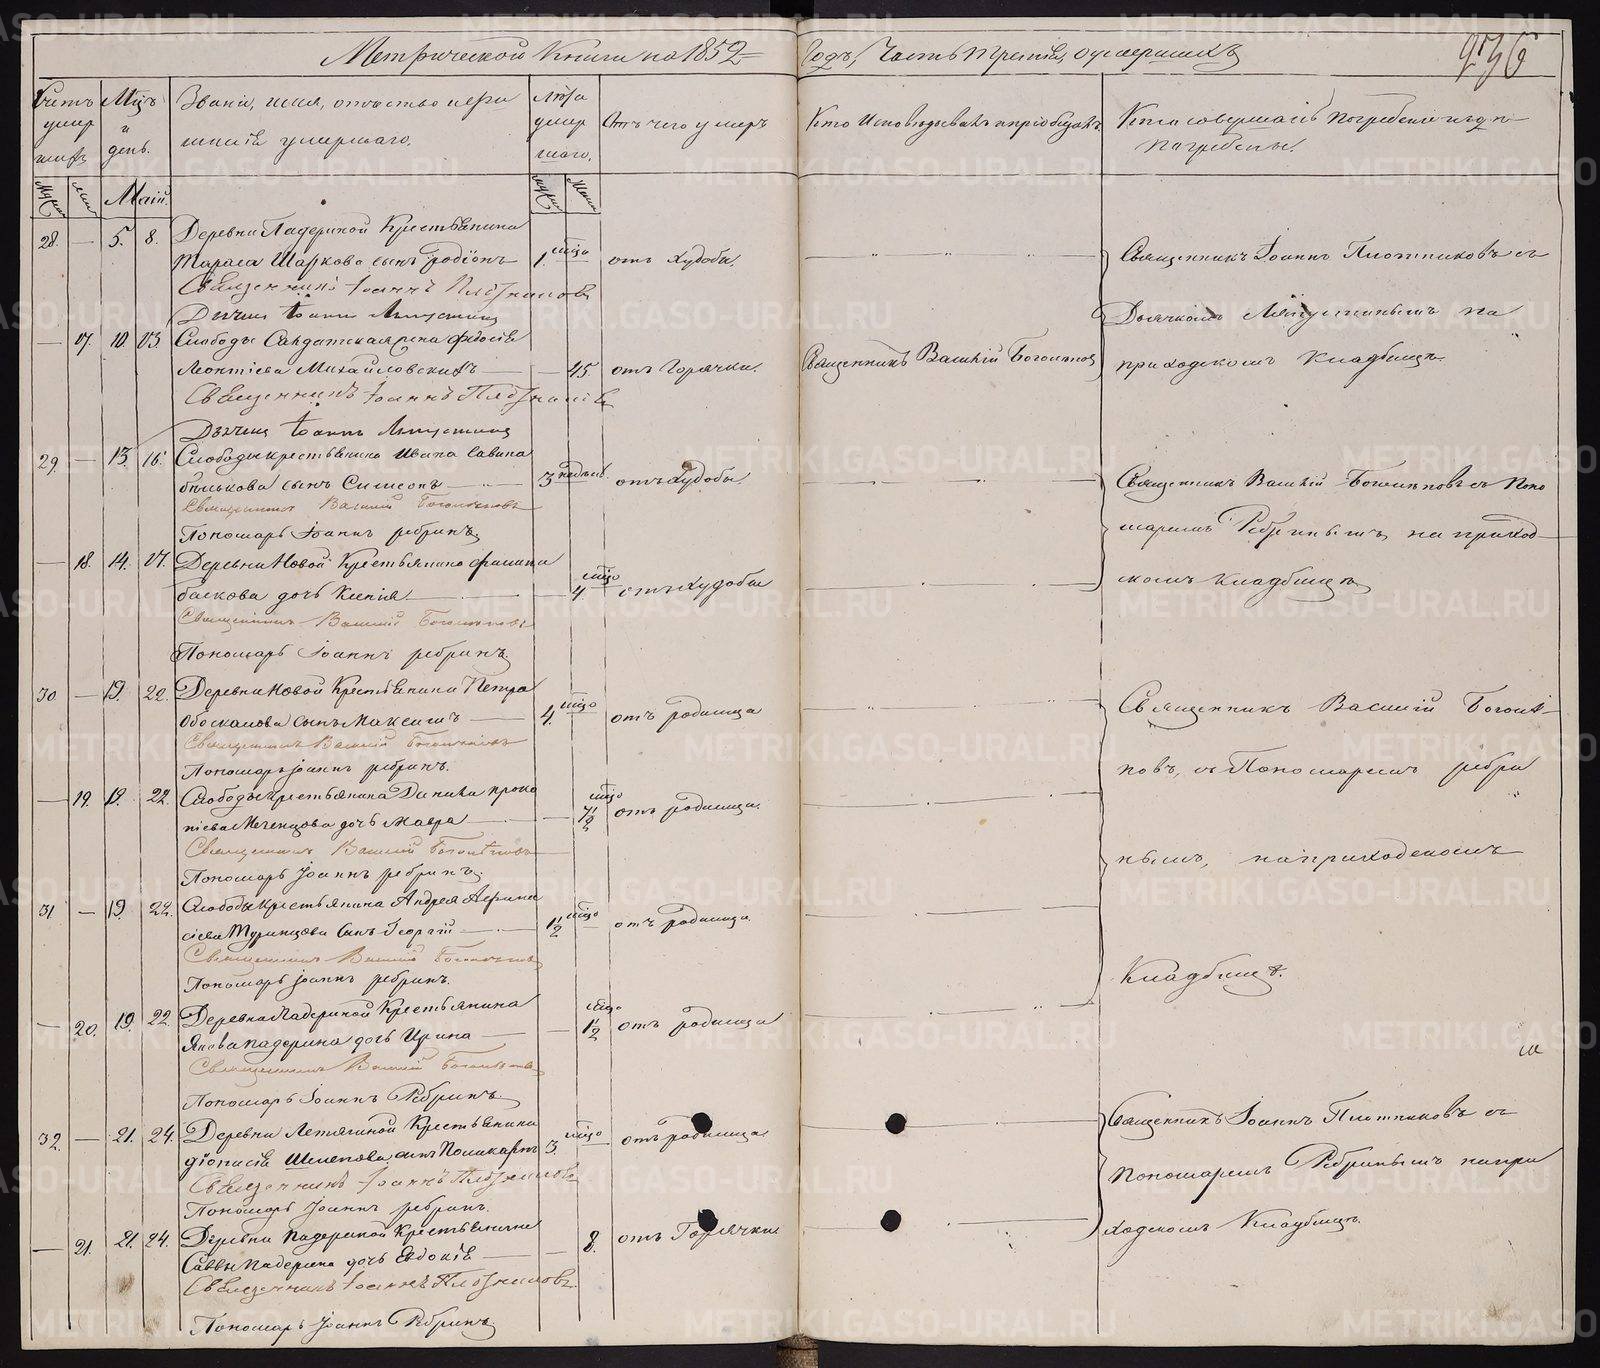 Метрической Книги на 1852 Годъ, Часть третія, о умершихъ
256
Счетъ умер шихъ
Мцъ и день.
Званіе, имя, отчество и фамилія умершаго.
Лѣта умер шаго.
Отъ чего умеръ
Кто Исповѣдывалъ и пріобщалъ
Кто совершалъ Погребеніе и гдѣ Погребены.
Май.
28. — 5. 8. Деревни Падериной Крестьянина
Тараса Шаркова сынъ Родіонъ 1. мцо отъ худобы.
Священникъ Іоаннъ Плотниковъ
Дьячекъ Іоаннъ
Священникъ Іоаннъ Плотниковъ съ
Дьячкомъ на
приходскомъ Кладбищѣ.
— 17. 10. 13. Слободы Салдатская жена Федосья
Леонтіева Михайловскихъ — 45. отъ Горячки. Священникъ Василій Боголѣповъ
Священникъ Іоаннъ Плотниковъ
Дьячекъ Іоаннъ
29 — 13. 16. Слободы крестьянина Ивана Савина
сынъ Симеонъ 3 недѣль отъ худобы.
Священникъ Василій Боголѣповъ
Пономарь Іоаннъ Ребринъ
Священникъ Василій Боголѣповъ съ Поно
маремъ Ребринымъ, на приход
скомъ Кладбищѣ
— 18. 14. 17. Деревни Новой Крестьянина Филипа
дочь Ксенія — 4. мцо отъ худобы
Священникъ Василій Боголѣповъ
Пономарь Іоаннъ Ребринъ.
30 — 19. 22. Деревни Новой Крестьянина Петра
сынъ Максимъ 4. мцо отъ родимца
Священникъ Василій Боголѣповъ
Пономарь Іоаннъ Ребринъ.
Священникъ Василій Боголѣ-
повъ, съ Пономаремъ Ребри
нымъ, на приходскомъ
Кладбищѣ.
— 19. 19. 22. Слободы крестьянина Данила Проко
піева дочь Мавра — 7½ мцо отъ родимца.
Священникъ Василій Боголѣповъ
Пономарь Іоаннъ Ребринъ.
31. — 19. 22. Слободы Крестьянина Андрея Афана
сіева Туринцова сынъ Георгій 1½ мцо отъ родимца.
Священникъ Василій Боголѣповъ
Пономарь Іоаннъ Ребринъ.
— 20. 19. 22. Деревни Падериной Крестьянина
Якова Падерина дочь Ирина — 1½ мцо отъ родимца
Священникъ Василій Боголѣповъ
Пономарь Іоаннъ Ребринъ.
32. — 21. 24. Деревни Летягиной Крестьянина
Діонисія Шмелова сынъ Поликарпъ 3. мцо отъ родимца
Священникъ Іоаннъ Плотниковъ
Пономарь Іоаннъ Ребринъ.
Священникъ Іоаннъ Плотниковъ съ
Пономаремъ Ребринымъ на при
ходскомъ Кладбищѣ.
— 21. 21. 24. Деревни Падериной Крестьянина
Саввы Падерина дочь Евдокія — 8. отъ Горячки
Священникъ Іоаннъ Плотниковъ
Пономарь Іоаннъ Ребринъ.
METRIKI.GASO-URAL.RU